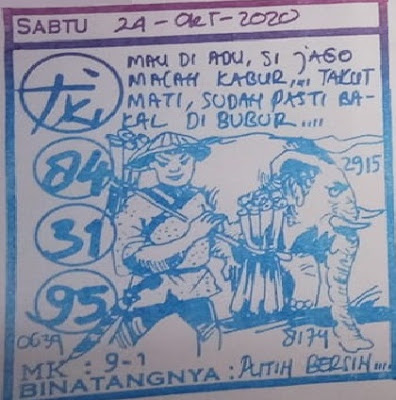 SABTU 24-OKT-2020
MAU DI ADU, SI JAGO
MALAH KABUR,... TAKUT
MATI, SUDAH PASTI BA-
KAL DI BUBUR....
84
2915
31
95
0639
8174
MK : 9-1
BINATANGNYA : PUTIH BERSIH....